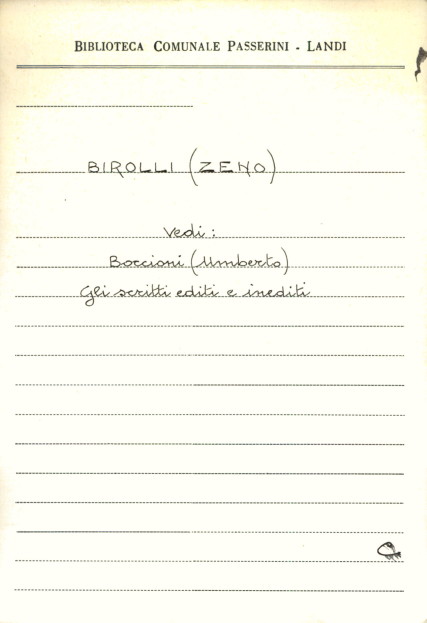 BIBLIOTECA COMUNALE PASSERINI - LANDI
BIROLLI (ZENO)
Vedi:
Boccioni (Umberto)
Gli scritti editi e inediti